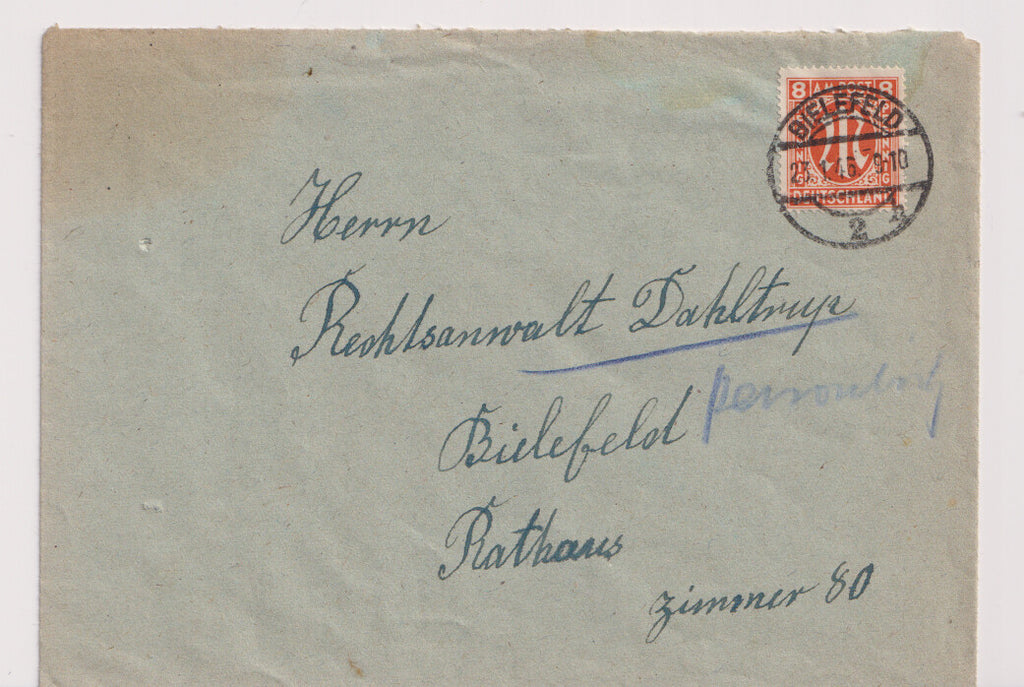 8 A.M. POST 8
DEUTSCHLAND
BIELEFELD
23.1.46. 9-10
2
Herrn
Rechtsanwalt Dahltrup
persönlich
Bielefeld
Rathaus
Zimmer 80